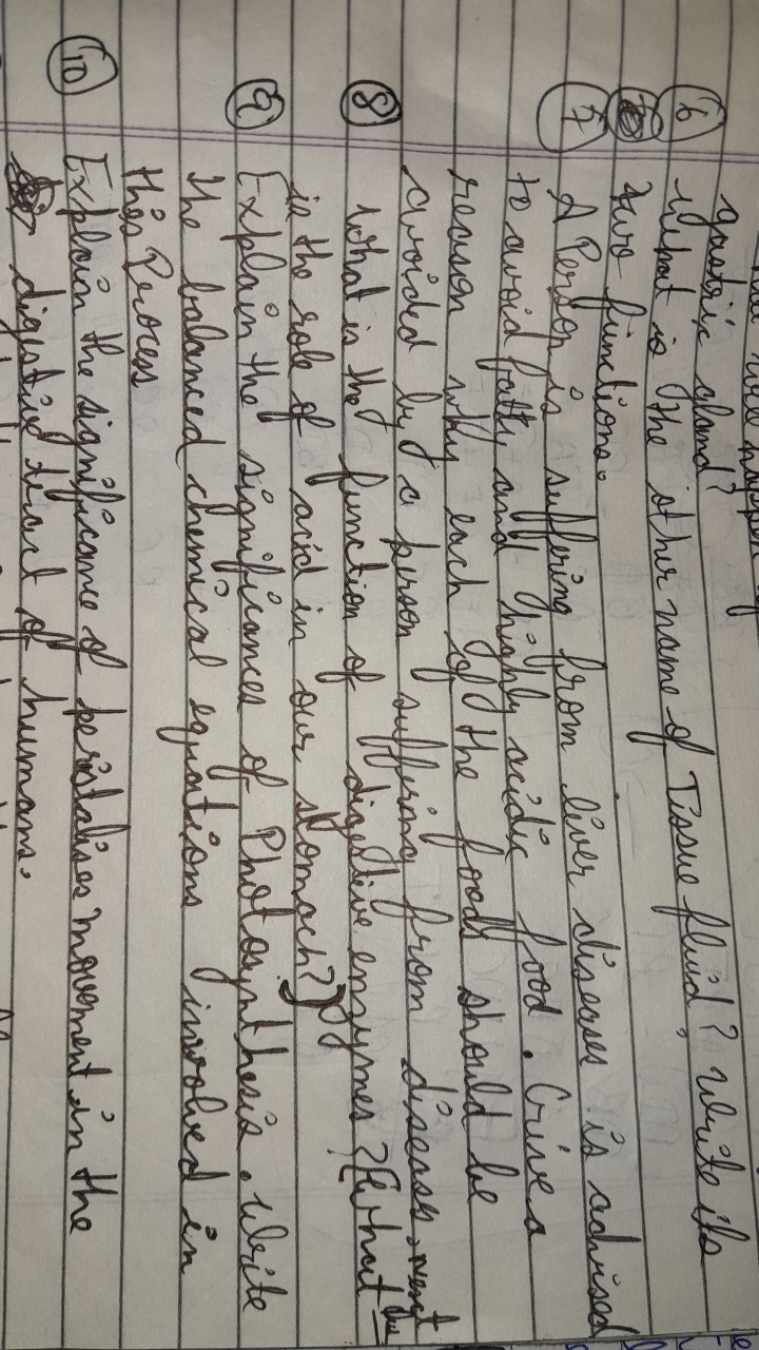 will happen if
gastric gland?
6 What is the other name of Tissue fluid? Write its
two functions.
7 A Person is suffering from liver diseases is advised
to avoid fatty and highly acidic food. Give a
reason why each of the foods should be
avoided by a person suffering from diseases,
8 What is the function of digestive enzymes? (What
is the role of acid in our stomach?)
9 Explain the significances of Photosynthesis. Write
the balanced chemical equations involved in
this Process
10 Explain the significance of peristalises movement in the
digestive tract of humans.